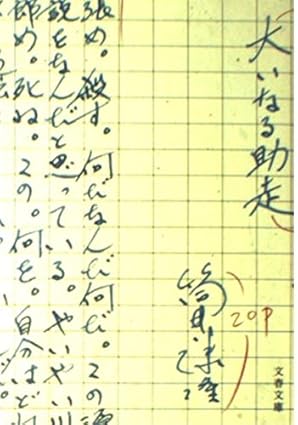 大いなる助走
筒井康隆
20P
文春文庫
め。殺す。何だなんだ何だ。この
説をなんだと思っている。やいやい
め。死ね。この。何を。自分はど